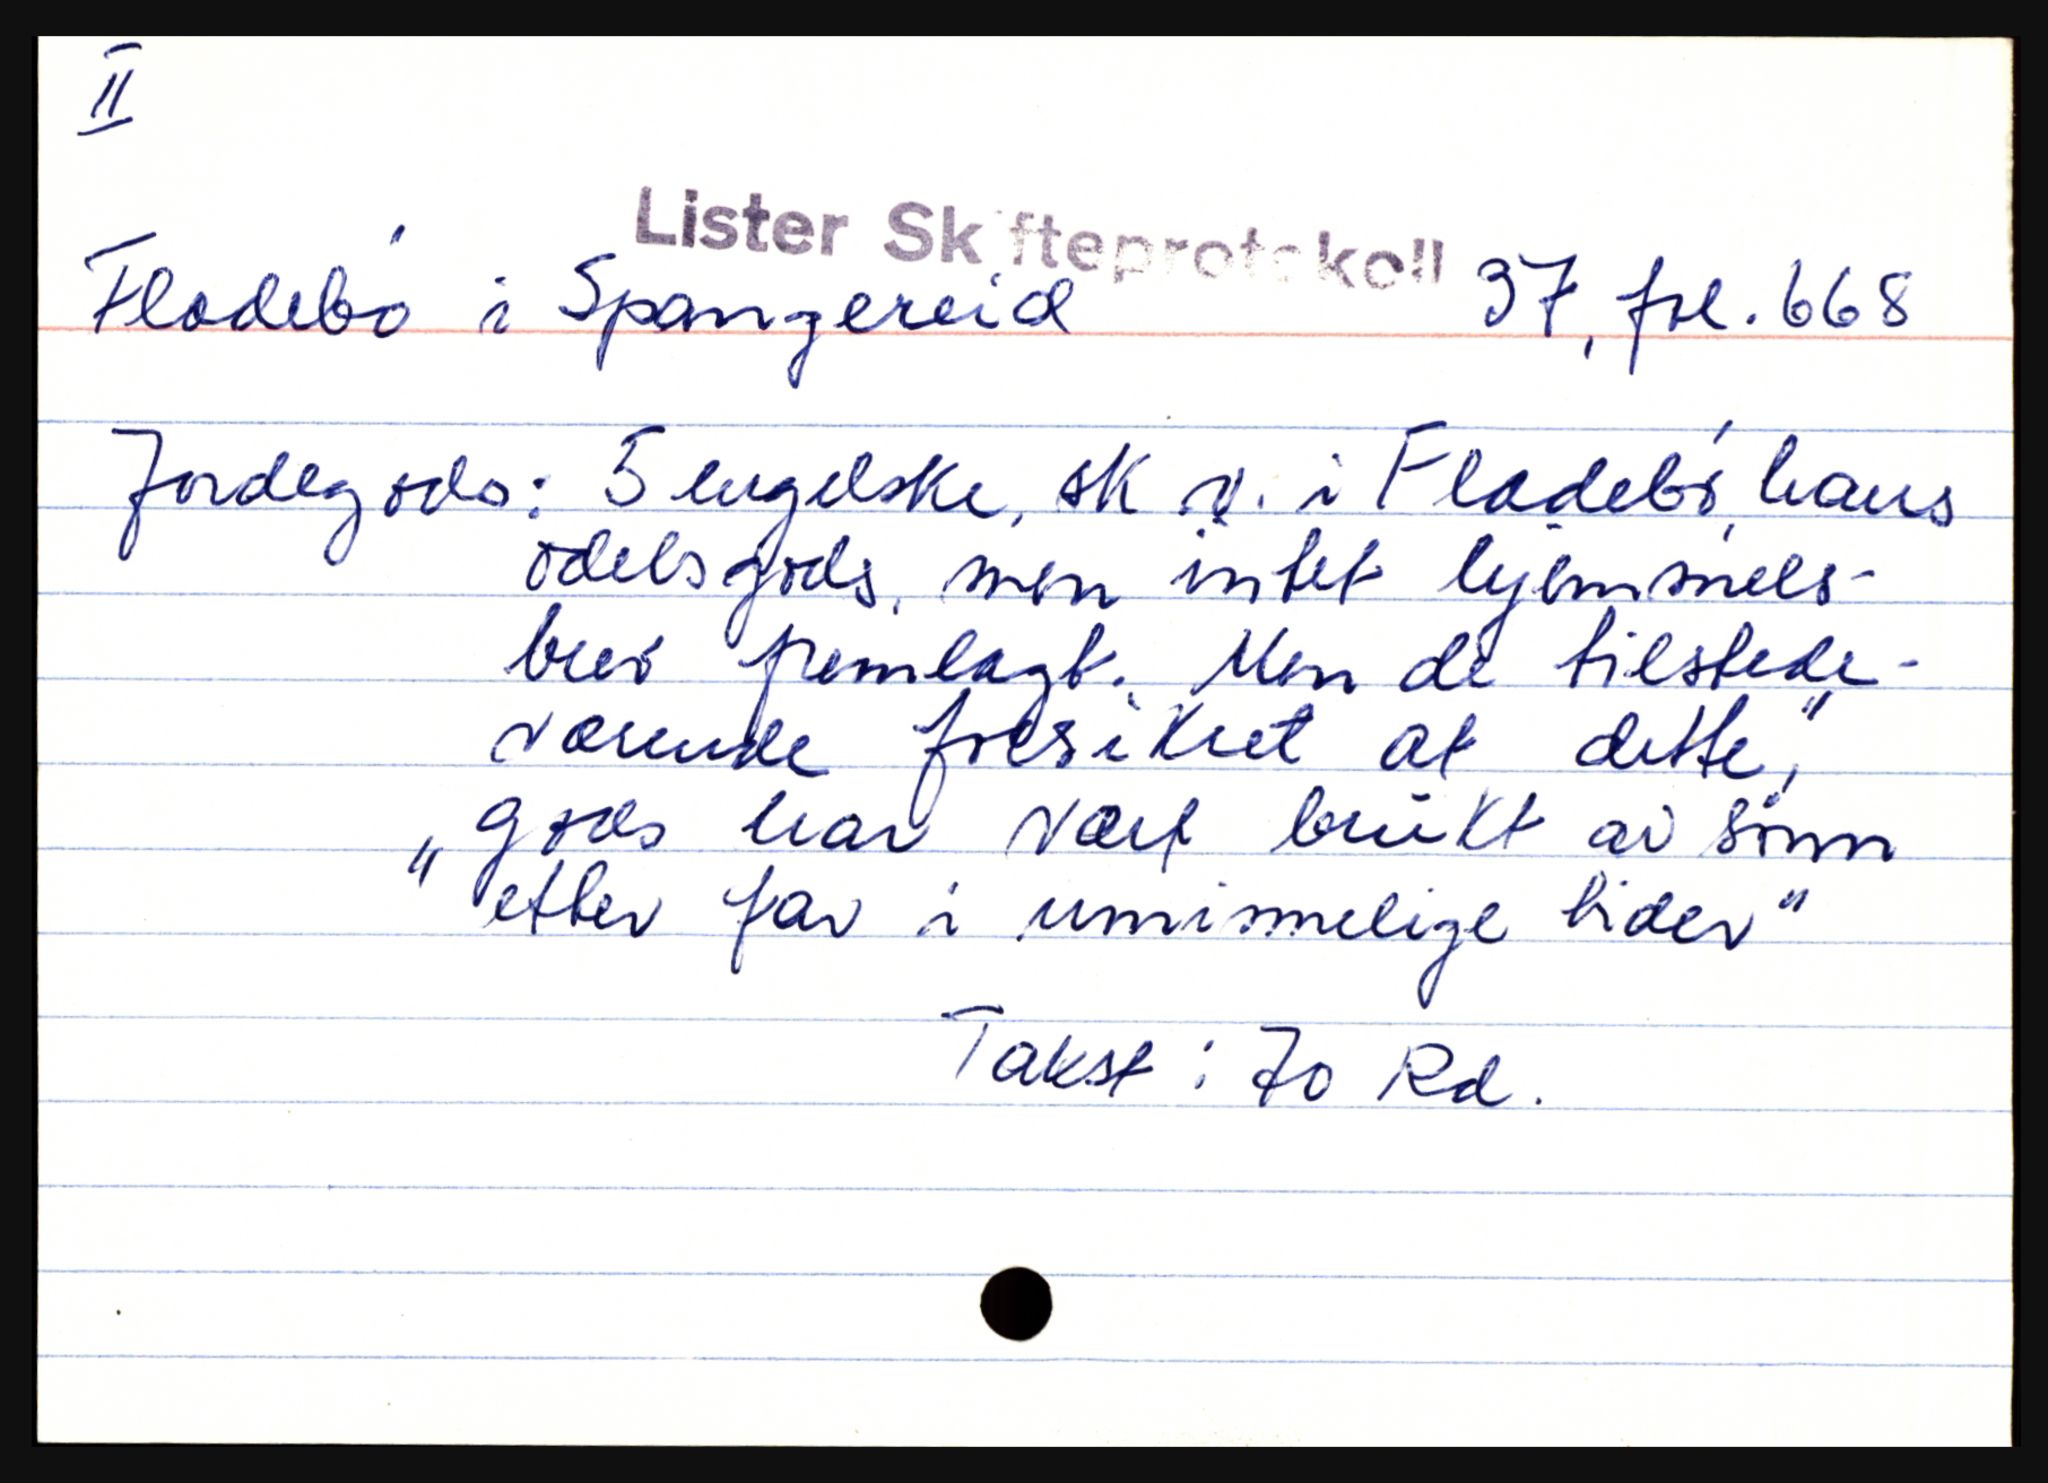 II
Lister Skifteprotokoll
Fladebø i Spangereid 37, fol. 668
Jordegods: 5 engelske, sk v. i Fladebø, hans
odelsgods, men intet hjemmels-
brev fremlagt. Men de tilstede-
værende forsikret at dette,"
„gods har vært brukt av sønn
etter far i uminnelige tider"
Takst: 70 Rd.